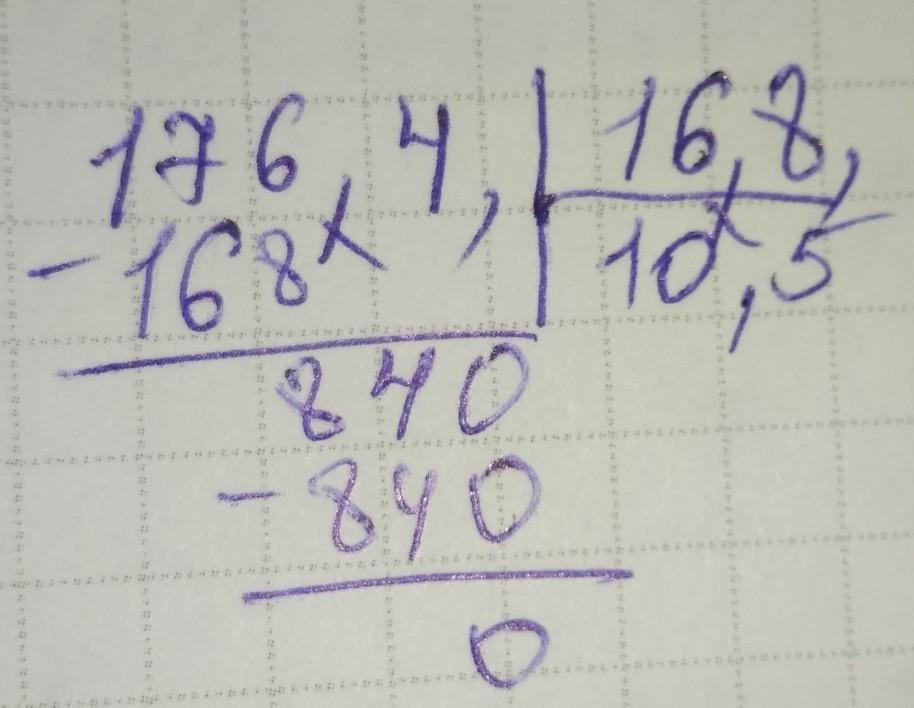 176,4, 16,8,
-168 10,5
840
-840
0